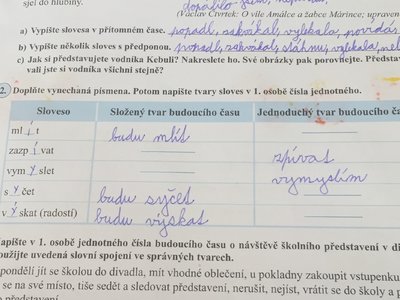 sjel do hlubiny.
(Václav Čtvrtek: O víle Amálce a žabce Márince; upraven
a) Vypište slovesa v přítomném čase. popadl, zakvákal, vylekala, povídás
b) Vypište několik sloves s předponou. popadl, zakvákal, stáhnu, vylekala, nel
c) Jak si představujete vodníka Kebuli? Nakreslete ho. Své obrázky pak porovnejte. Předsta
vali jste si vodníka všichni stejně?
2. Doplňte vynechaná písmena. Potom napište tvary sloves v 1. osobě čísla jednotného.
Sloveso Složený tvar budoucího času Jednoduchý tvar budoucího ča
ml í t budu mlít
zazp í vat zpívat
vym y slet vymyslím
s y čet budu syčet
v ý skat (radostí) budu výskat
Napište v 1. osobě jednotného čísla budoucího času o návštěvě školního představení v di
použijte uvedená slovní spojení ve správných tvarech.
pondělí jít se školou do divadla, mít vhodné oblečení, u pokladny zakoupit vstupenku
se na své místo, tiše sedět a sledovat představení, nerušit, nejíst, vrátit se do školy a p
představení.